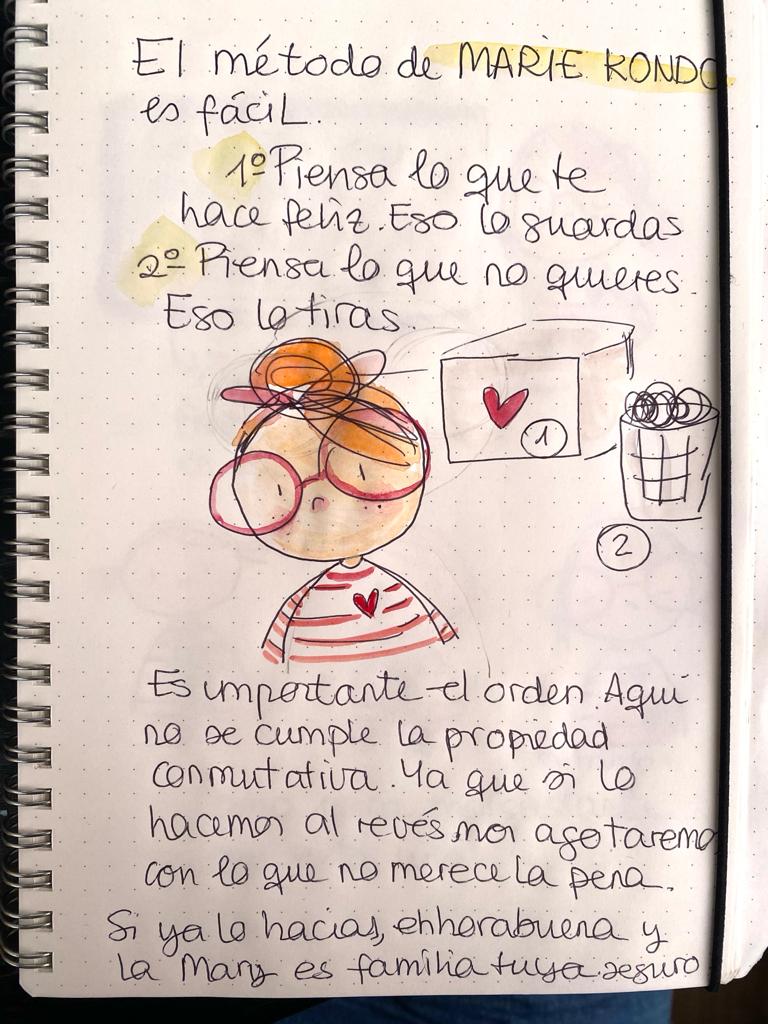 El método de MARIE KONDO
es fácil.
1º Piensa lo que te
hace feliz. Eso lo guardas
2º Piensa lo que no quieres.
Eso lo tiras.
1
2
Es importante el orden. Aquí
no se cumple la propiedad
conmutativa. Ya que si lo
hacemos al revés, nos agotaremo
con lo que no merece la pena.
Si ya lo hacías, enhorabuena y
la Mary es familia tuya seguro